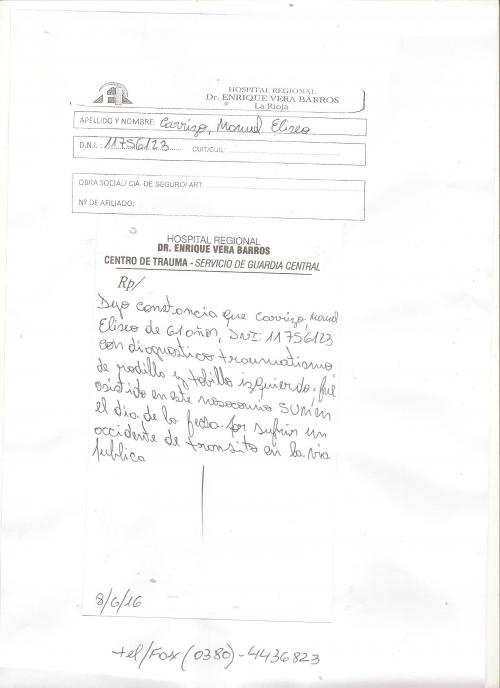 HOSPITAL REGIONAL
Dr. ENRIQUE VERA BARROS
La Rioja
APELLIDO Y NOMBRE: Carrizo, Manuel Eliseo
D.N.I.: 11756123 CUIT/CUIL:
OBRA SOCIAL/ CIA. DE SEGURO/ ART.
Nº DE AFILIADO:
HOSPITAL REGIONAL
DR. ENRIQUE VERA BARROS
CENTRO DE TRAUMA - SERVICIO DE GUARDIA CENTRAL
Rp/
Dejo constancia que Carrizo, Manuel
Eliseo de 61 años, DNI: 11756123
con diagnostico traumatismo
de rodilla y tobillo izquierdo, fué
asistido en este nosocomio en
el día de la fecha por sufrir un
accidente de transito en la via
publica
8/6/16
tel/Fax (0380)-4436823